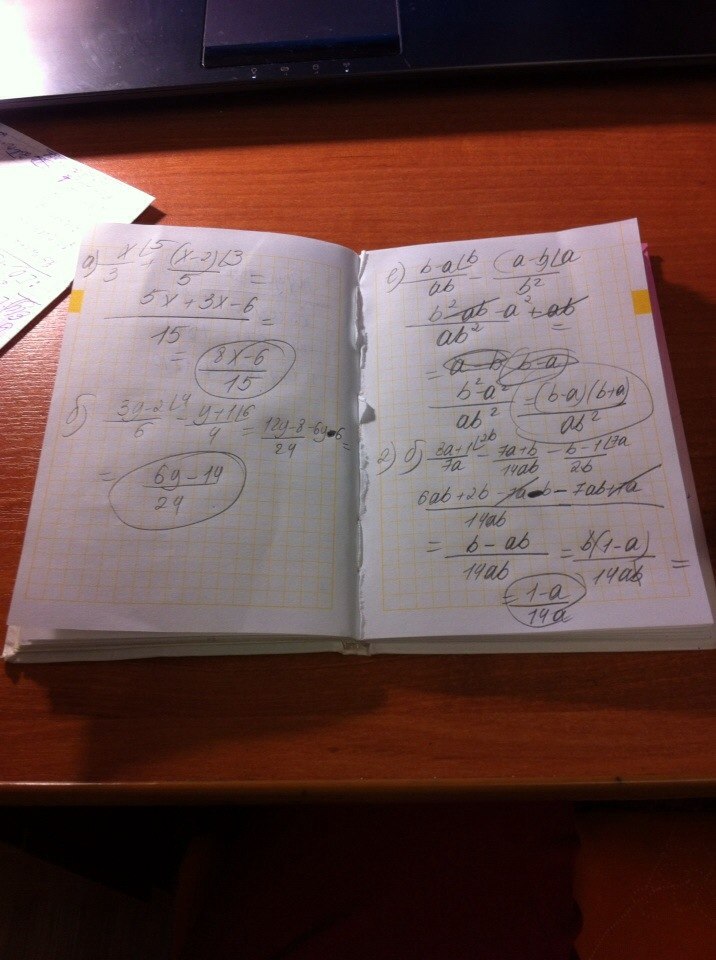 а) x⌊5/3 + (x-2)⌊3/5 =
5x+3x-6/15 =
= 8x-6/15
б) 3y-2⌊4/6 - y+1⌊6/4 = 12y-8-6y-6/24 =
= 6y-14/24
с) b-a⌊b/ab - (a-b)⌊a/b²
b²-ab-a²+ab/ab² =
= a-b (b-a)
b²-a²/ab² = (b-a)(b+a)/ab²
2) б) 3a+1⌊2b/7a - 7a+b/14ab - b-1⌊7a/2b
6ab+2b-7a-b-7ab+7a/14ab
= b-ab/14ab = b(1-a)/14ab =
= 1-a/14a